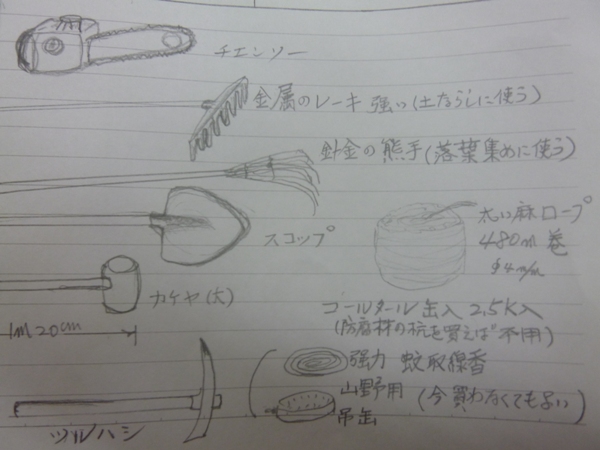 チエンソー
金属のレーキ 強い(土ならしに使う)
針金の熊手(落葉集めに使う)
スコップ
太い麻ロープ
480m 巻
φ4m/m
カケヤ(大)
1m20cm
コールタール缶入 2.5K入
(防腐材の杭を買えば不用)
強力 蚊取線香
山野用
吊缶
(今買わなくてもよい)
ツルハシ